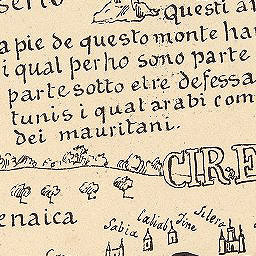 serto
Questi ar
a pie de questo monte han
i qual per ho sono parte
parte sotto el re de fessa
tunis i quat arabi com
dei mauritani.
CIRE
enaica
Sabia Cahiab Fine Silera